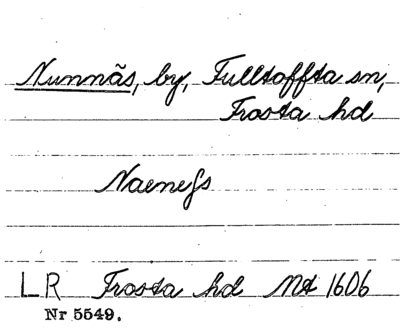 Nunnäs, by, Fulltoffta sn,
Frosta hd
Naenes̈s
LR Frosta hd Mt 1606
Nr 5549.